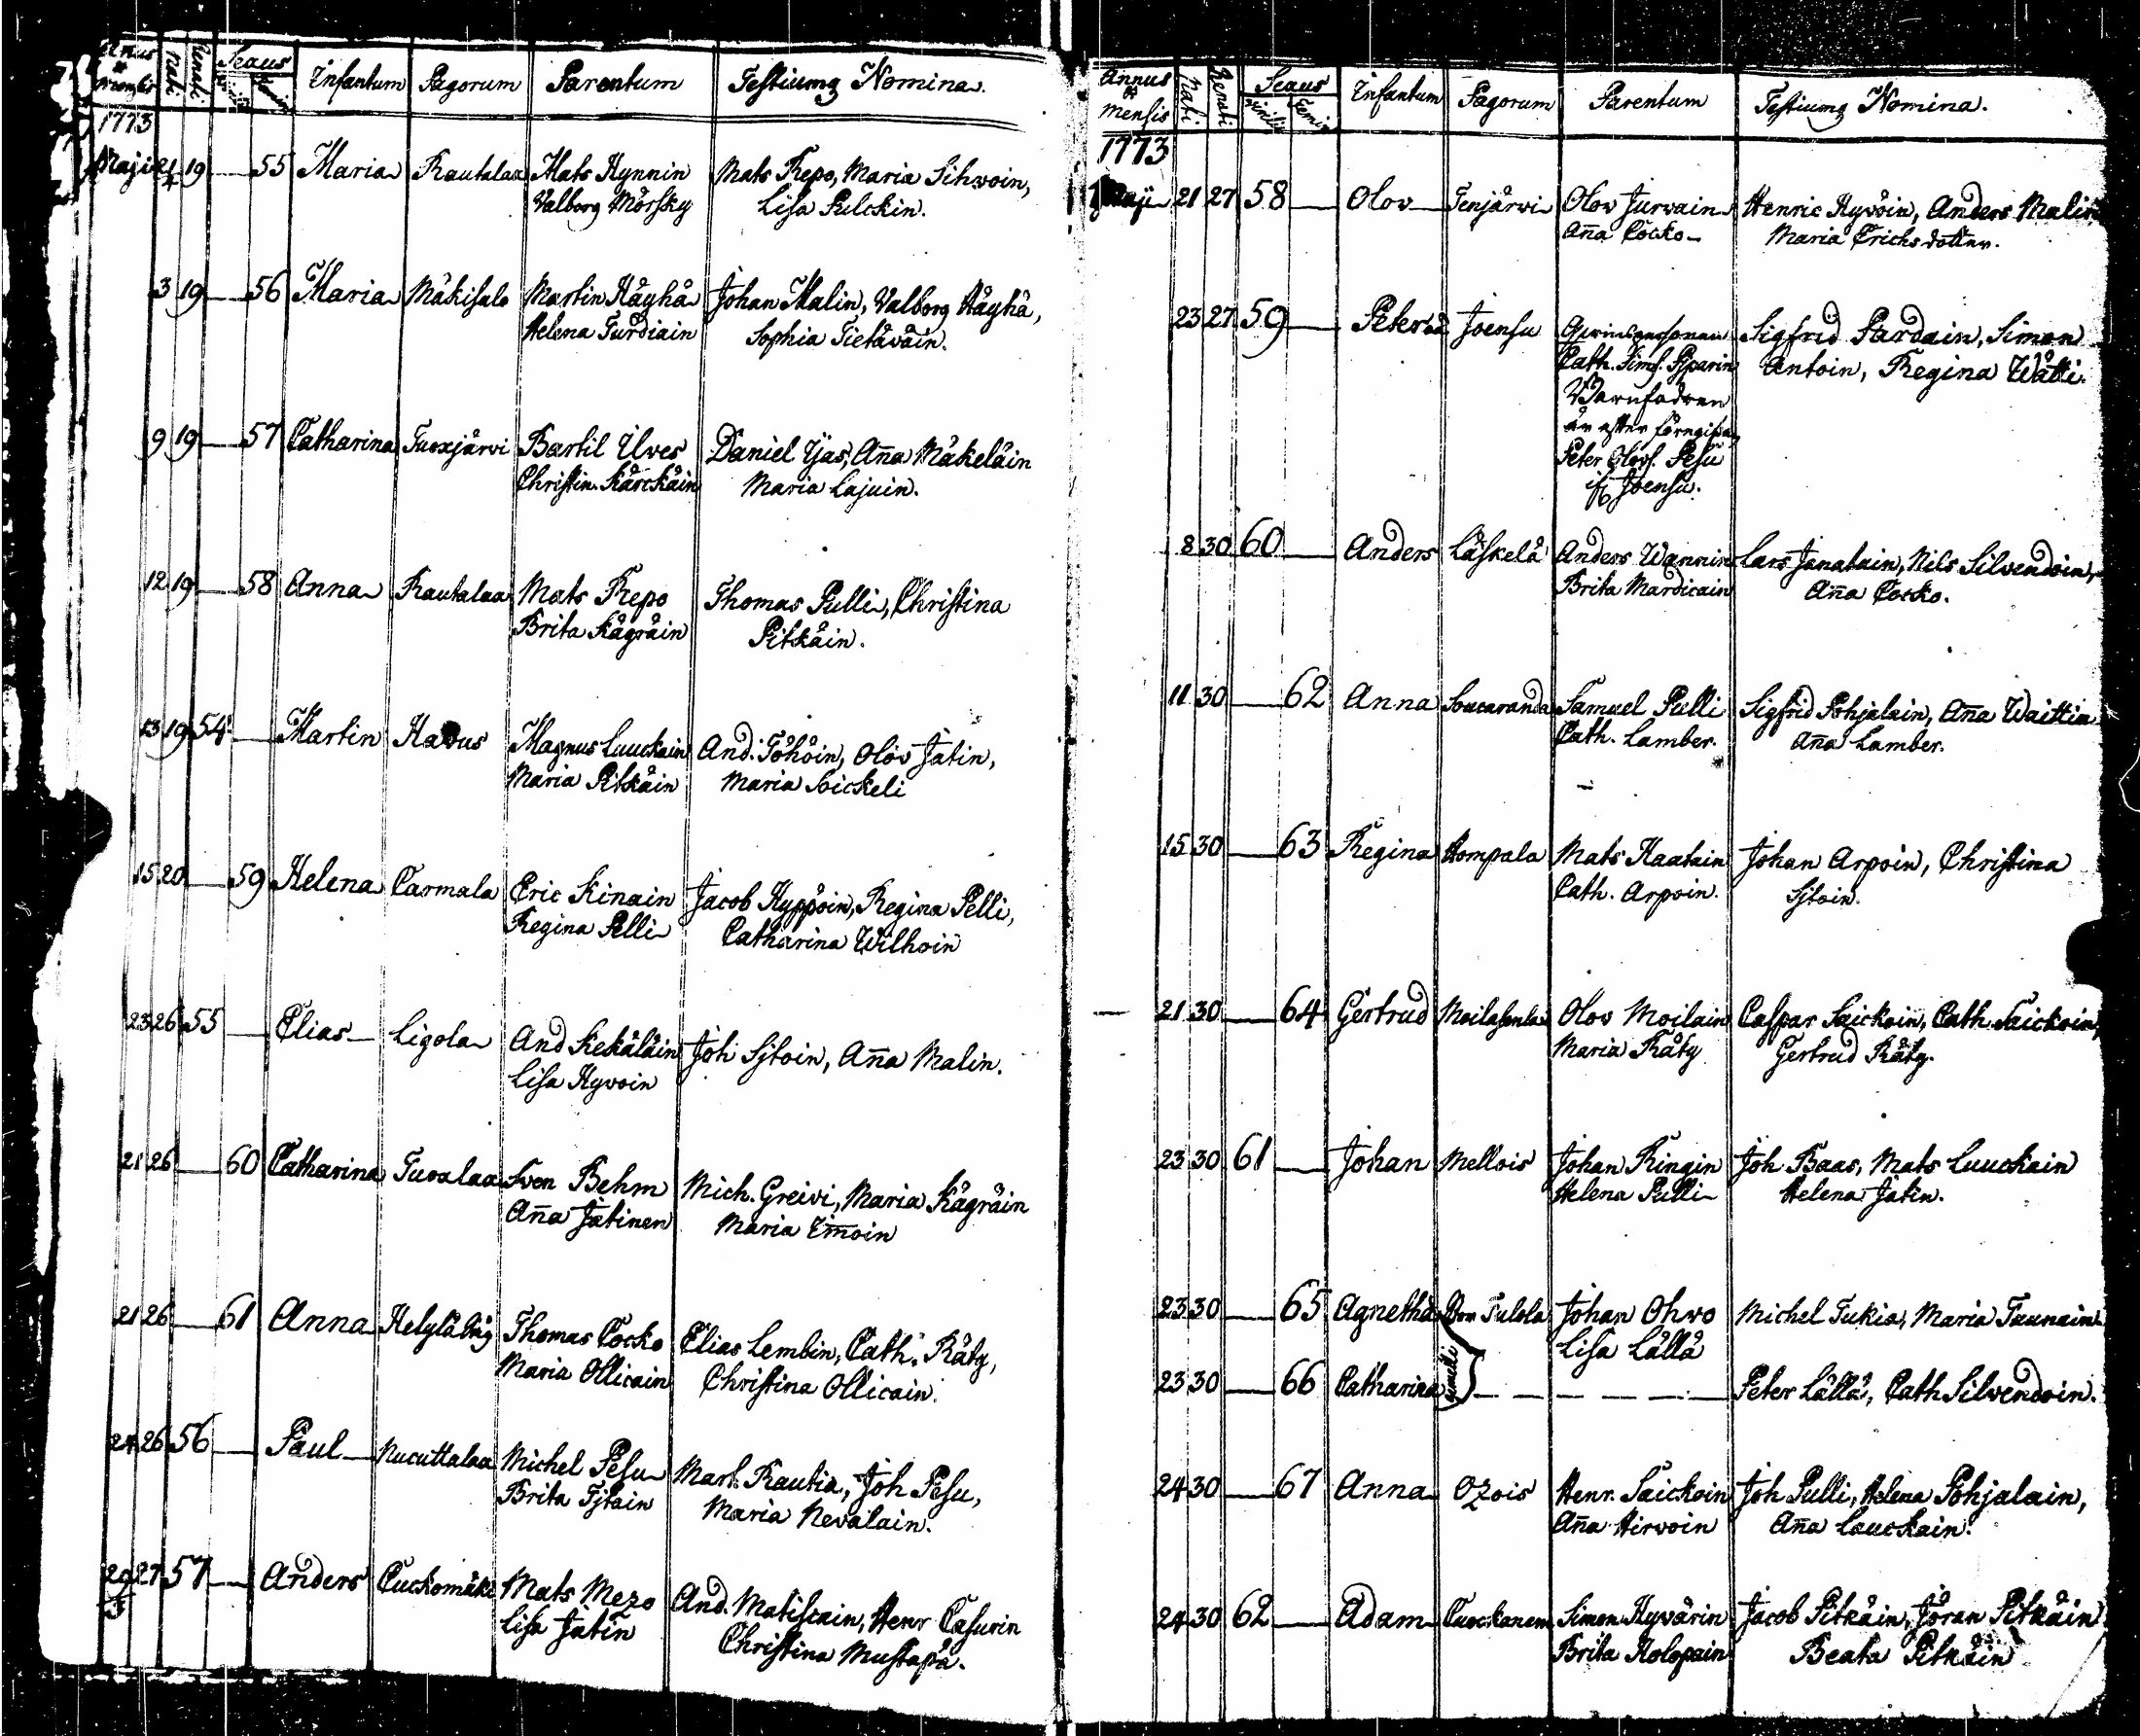 Annus & mensis Nati Renati Sexus Infantum Pagorum Parentum Testiumq Nomina.
1773
Maji 21/4 19 — 55 Maria Rautalax Mats Hynnin Mats Repo, Maria Sihvoin,
Valborg Mörsky Lisa Pulckin.
3 19 — 56 Maria Mäkisalo Martin Häyhä Johan Malin, Valborg Häyhä,
Helena Turdiain Sophia Tietäväin.
9 19 — 57 Catharina Tuoxjärvi Bartil Ilves Daniel Ijas, Aña Mäkeläin
Christin. Kärckäin Maria Lajuin.
12 19 — 58 Anna Rautalax Mats Repo Thomas Pulli, Christina
Brita Kägräin Pitkäin.
13 19 54 — Martin Havus Magnus Luuckain And. Töhöin, Olov Jatin,
Maria Pitkäin Maria Soickeli
15 20 — 59 Helena Carmala Eric Kinain Jacob Hyppöin, Regina Pelli,
Regina Pelli Catharina Wilhoin
23 26 55 — Elias Ligola And Kekäläin Joh Sjtoin, Aña Malin.
Lisa Hyvoin
21 26 — 60 Catharina Tuoxlax Sven Behm Mich. Greivi, Maria Kägräin
Aña Jatinen Maria Im̃oin
21 26 — 61 Anna Helylä Thomas Cocko Elias Lembin, Cath. Räty,
Maria Ollicain Christina Ollicain.
24 26 56 — Paul Nucuttalax Michel Pesu Mart. Rautia, Joh Pesu,
Brita Tjtain Maria Nevalain.
29/3 27 57 — Anders Cuckomäki Mats Mezo And. Matiscain, Henr Casurin
Lisa Jatin Christina Mustapä.
Annus & Mensis Nati Renati Sexus Virilis Femin Infantum Pagorum Parentum Testiumq Nomina.
1773
Maji 21 27 58 — Olov Tenjärvi Olov Jurvain Henric Hyvöin, Anders Malin
Aña Cocko Maria Erichsdotter.
23 27 59 — Peter Joensu Sigfrid Pardain, Simon
Cath. Sims. Antoin, Regina Wätti.
Barnfadren
är efter
Peter Olovs. Pesu
Joensu.
8 30 60 — Anders Läskelä Anders Wannin Lars Janatuin, Nils Silvendoin,
Brita Mardicain Aña Cocko.
11 30 — 62 Anna Soucaranda Samuel Pulli Sigfrid Pohjalain, Aña Waittin
Cath. Lamber. Aña Lamber.
15 30 — 63 Regina Hompala Mats Kaatain Johan Arpoin, Christina
Cath. Arpoin. Sjtoin.
21 30 — 64 Gertrud Olov Moilain Caspar Saickoin, Cath. Saickoin,
Maria Räty Gertrud Räty.
23 30 61 — Johan Mellois Johan Ringin Joh Baas, Mats Luuckain
Helena Pulli Helena Jatin.
23 30 — 65 Agnetha Tulola Johan Ohvo Michel Tukia, Maria Taunain
Lisa Lällä
23 30 — 66 Catharina gemelli — — — — Peter Lällä, Cath Silvendoin.
24 30 — 67 Anna Ozois Henr. Saickoin Joh Pulli, Helena Pohjalain,
Aña Hirvoin Aña Louckain.
24 30 62 — Adam Cuockanem Simon Hyvärin Jacob Pitkäin, Jöran Pitkäin
Brita Holopain Beata Pitkäin